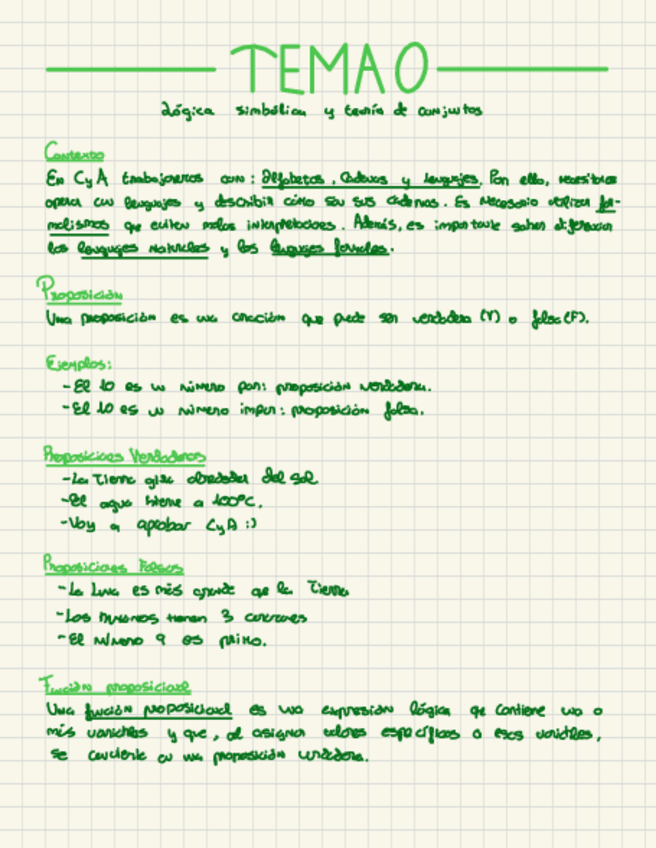 TEMA 0
Lógica simbólica y teoría de conjuntos
Contexto
En CyA trabajaremos con: Alfabetos, Cadenas y lenguajes. Por ello, necesitamos
operar con lenguajes y describir cómo son sus cadenas. Es necesario utilizar for-
malismos que eviten malas interpretaciones. Además, es importante saber diferenciar
los lenguajes naturales y los lenguajes formales.
Proposición
Una proposición es una oración que puede ser verdadera (V) o falsa (F).
Ejemplos:
-El 10 es un número par: proposición verdadera.
-El 10 es un número impar: proposición falsa.
Proposiciones Verdaderas
-La Tierra gira alrededor del sol
-El agua hierve a 100°C.
-Voy a aprobar CyA :)
Proposiciones Falsas
-La Luna es más grande que la Tierra
-Los humanos tienen 3 corazones
-El número 9 es primo.
Función proposicional
Una función proposicional es una expresión lógica que contiene una o
más variables y que, al asignar valores específicos a esas variables,
se convierte en una proposición verdadera.